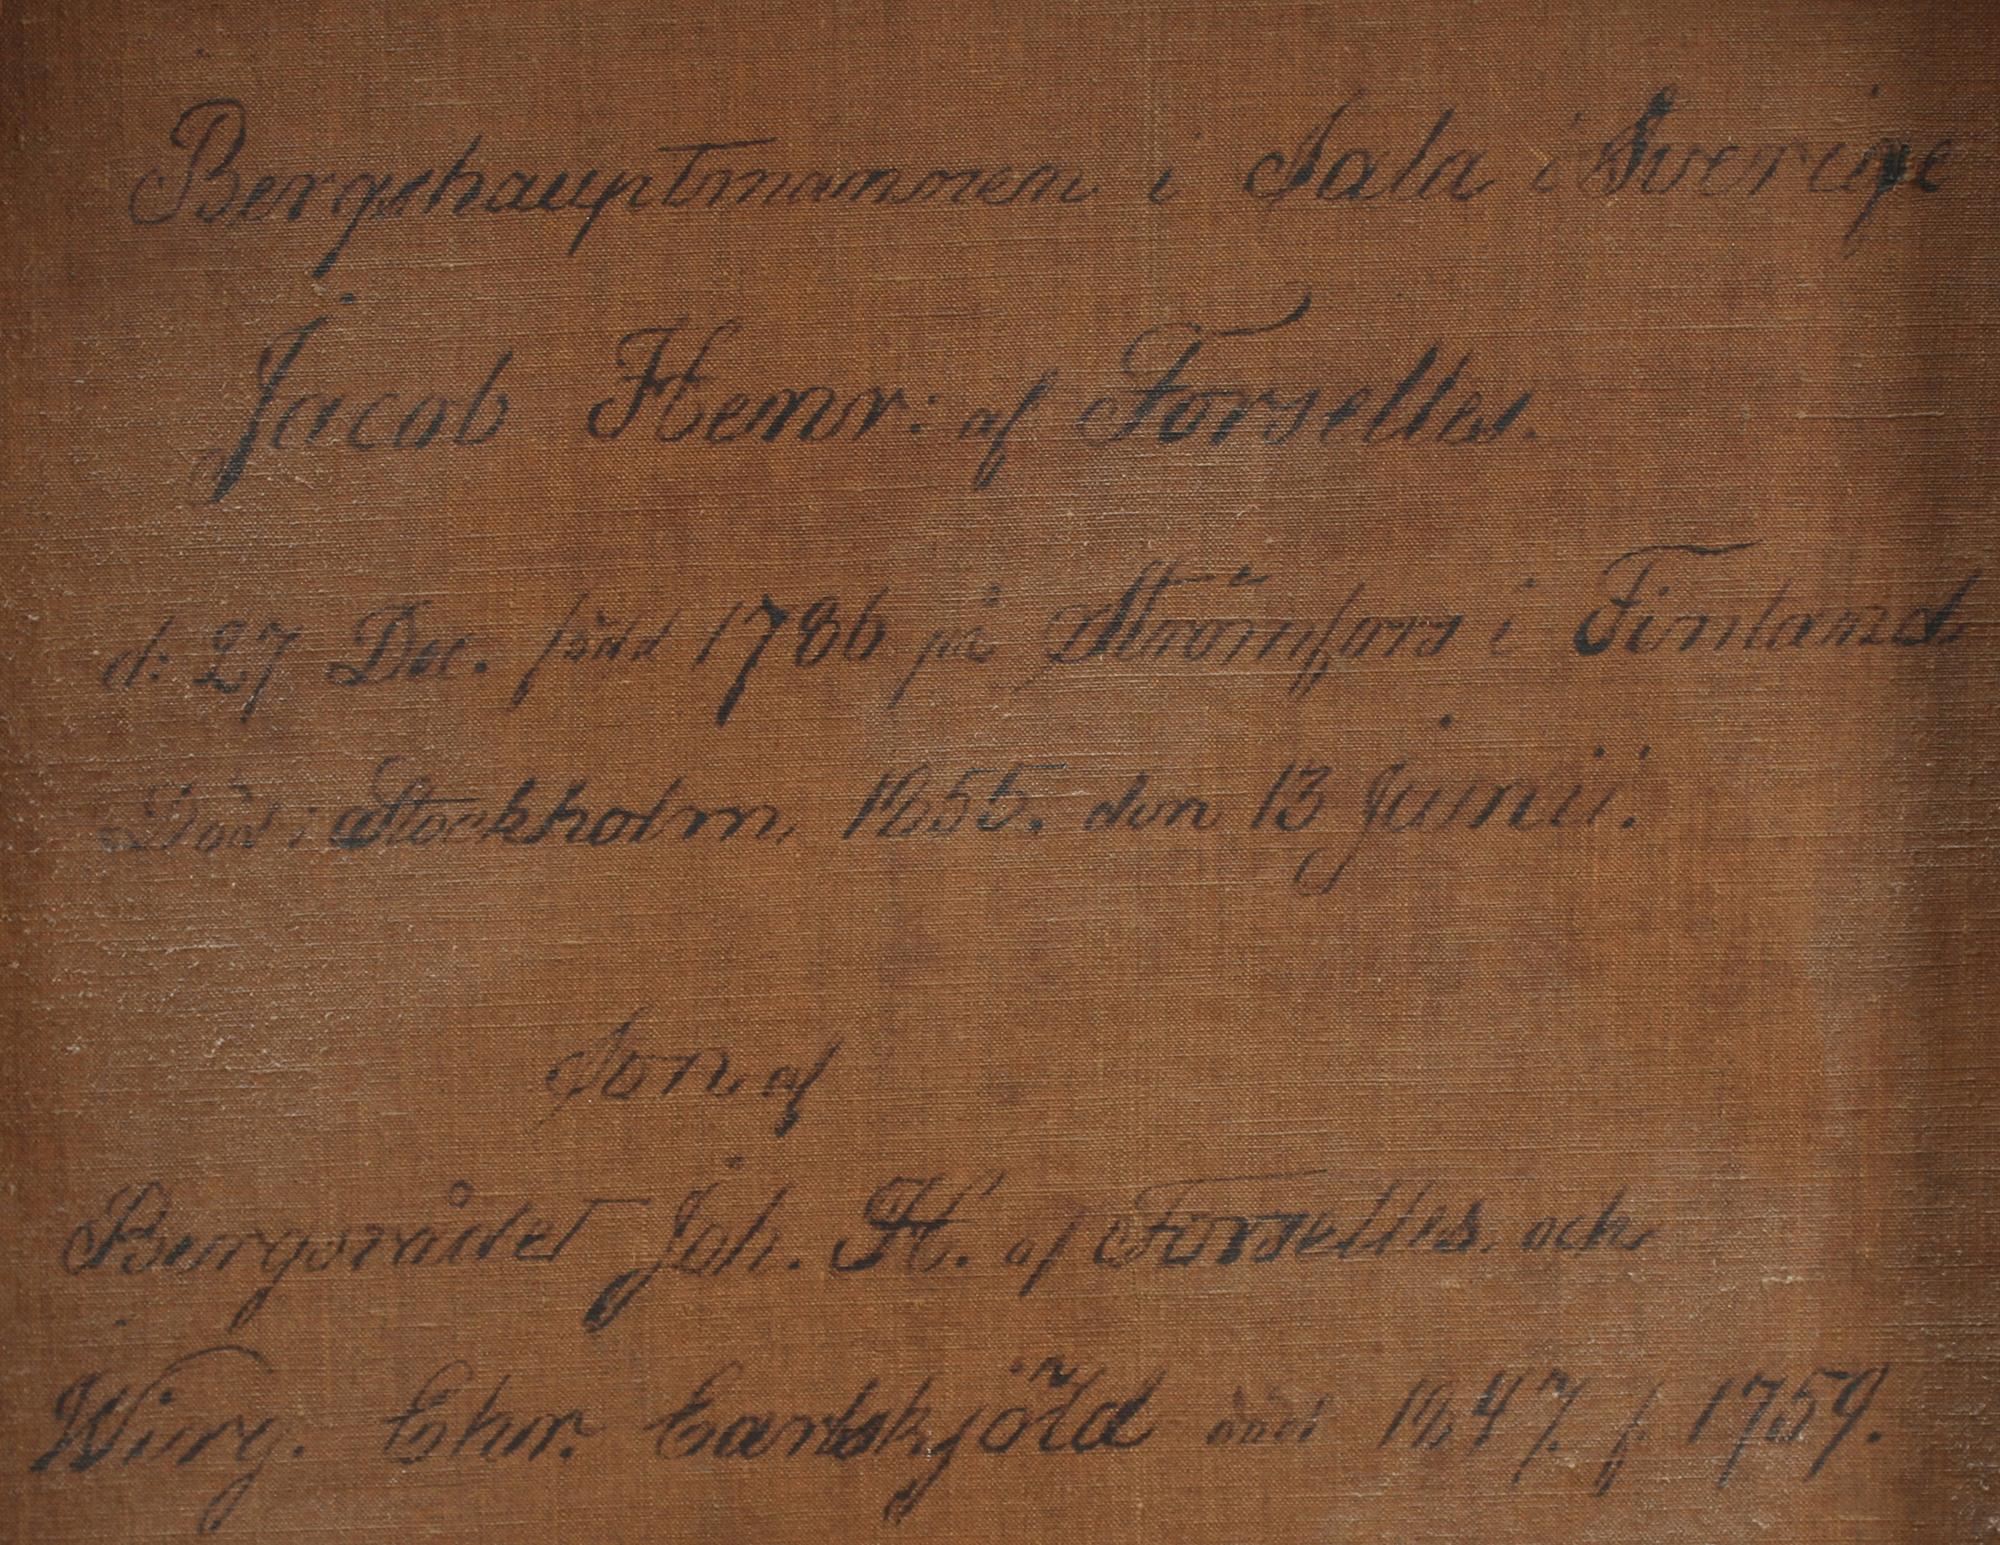 Bergshauptmannen i Sala i Sverige
Jacob Henr: af Forselles.
d: 27 Dec. född 1786 på Strömfors i Finland
Död i Stockholm, 1855. den 13 Junii.
Son af
Bergsrådet Joh. H. af Forselles. och
Wirg. Ehr. Earlskjöld död 1847. f. 1759.